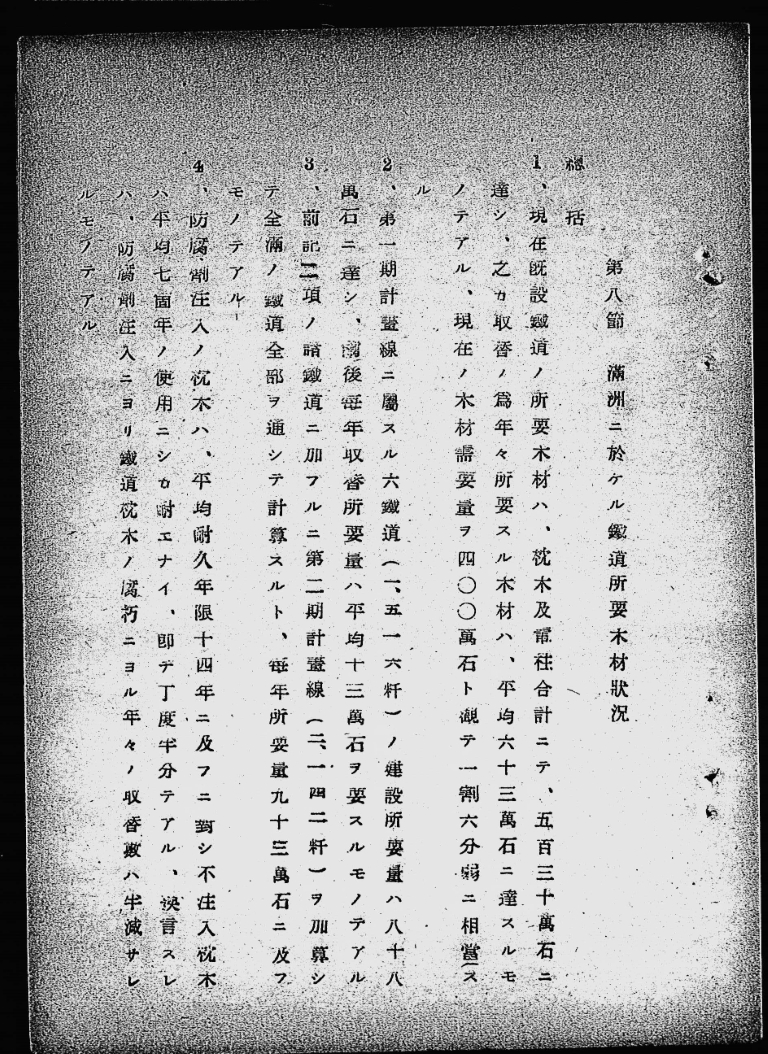 第八節　滿洲ニ於ケル鐵道所要木材狀況
總括
1、現在既設鐵道ノ所要木材ハ、枕木及電柱合計ニテ、五百三十萬石ニ
達シ、之カ取替ノ爲年々所要スル木材ハ、平均六十三萬石ニ達スルモ
ノテアル、現在ノ木材需要量ヲ四〇〇萬石ト觀テ一割六分弱ニ相當ス
ル
2、第一期計畫線ニ屬スル六鐵道(一、五一六粁)ノ建設所要量ハ八十八
萬石ニ達シ、爾後每年取替所要量ハ平均十三萬石ヲ要スルモノテアル
3、前記二項ノ諸鐵道ニ加フルニ第二期計畫線(二、一四二粁)ヲ加算シ
テ全滿ノ鐵道全部ヲ通シテ計算スルト、每年所要量九十三萬石ニ及フ
モノテアル
4、防腐劑注入ノ枕木ハ、平均耐久年限十四年ニ及フニ對シ不注入枕木
ハ平均七箇年ノ使用ニシカ耐エナイ、卽チ丁度半分テアル、換言スレ
ハ、防腐劑注入ニヨリ鐵道枕木ノ腐朽ニヨル年々ノ取替數ハ半減サレ
ルモノテアル